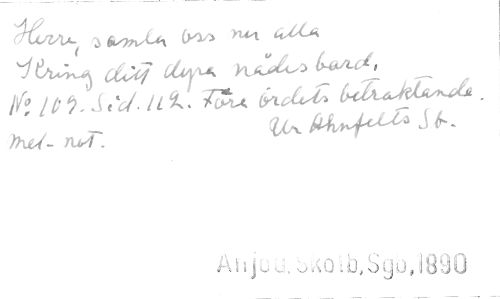 Herre, samla oss nu alla
Kring ditt dyra nådesbord,
No 109. Sid. 112. Före ordets betraktande.
mel-not. Ur Ahnfelts Sb.
Anjou, Skolb, Sgb, 1890